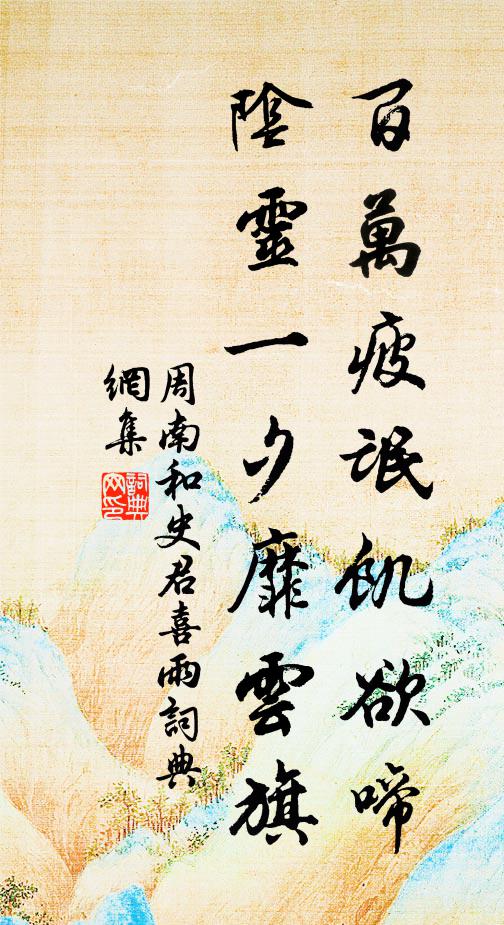 百萬疲氓飢欲啼
陰靈一夕靡雲旗
周南和史君喜雨詞典
網集
詞典
网印